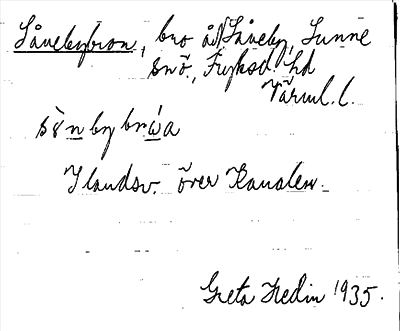 Sånebybron, bro åt Såneby, Sunne
snö., Fryksd. hd
Värml. l.
sö̀nbybrẁa
I landsv. över Kanalen.
Greta Hedin 1935.